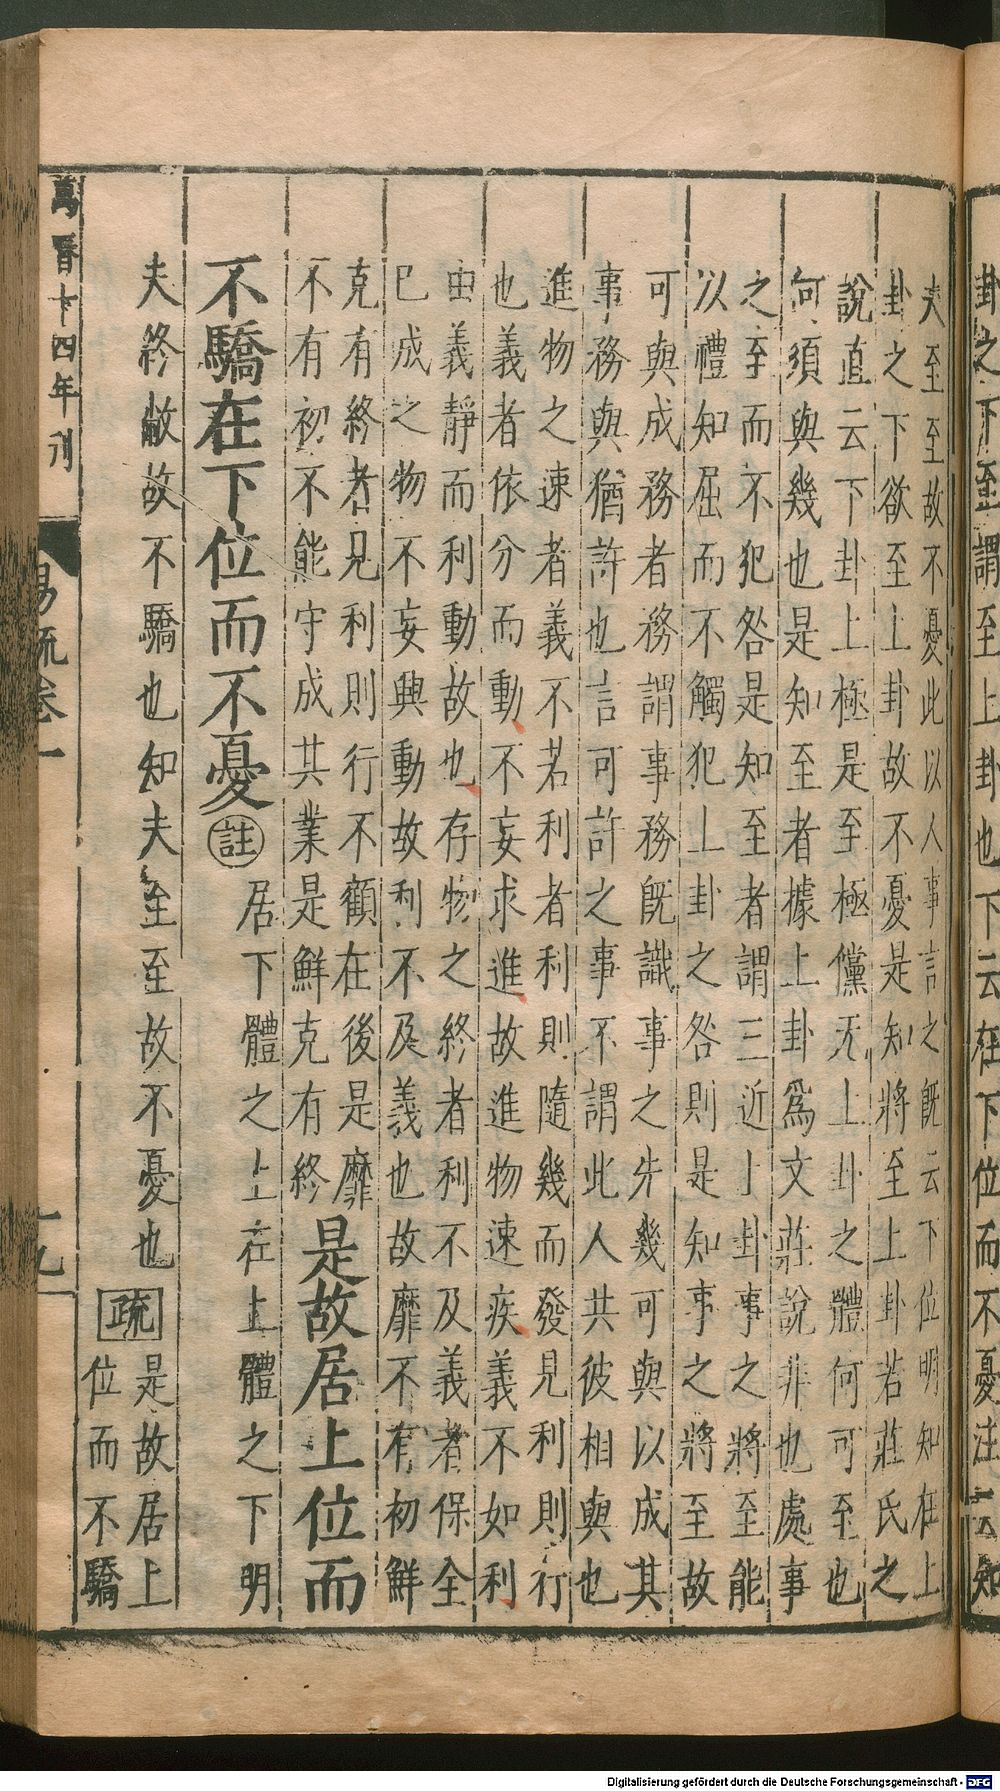 卦之下至謂至上卦也下云在下位而不憂注云知
夫至至故不憂此以人事言之既云下位明知在上
卦之下欲至上卦故不憂是知將至上卦若莊氏之
說直云下卦上極是至極儻无上卦之體何可至也
何須與幾也是知至者據上卦爲文莊說非也處事
之至而不犯咎是知至者謂三近上卦事之將至能
以禮知屈而不觸犯上卦之咎則是知事之將至故
可與成務者務謂事務既識事之先幾可與以成其
事務與猶許也言可許之事不謂此人共彼相與也
進物之速者義不若利者利則隨幾而發見利則行
也義者依分而動不妄求進故進物速疾義不如利
由義靜而利動故也存物之終者利不及義者保全
已成之物不妄興動故利不及義也故靡不有初鮮
克有終者見利則行不顧在後是靡
不有初不能守成其業是鮮克有終
是故居上位而
不驕在下位而不憂
註
居下體之上在上體之下明
夫終敝故不驕也知夫至至故不憂也
疏
是故居上
位而不驕
萬曆十四年刊
易疏卷一
十九
Digitalisierung gefördert durch die Deutsche Forschungsgemeinschaft - DFG